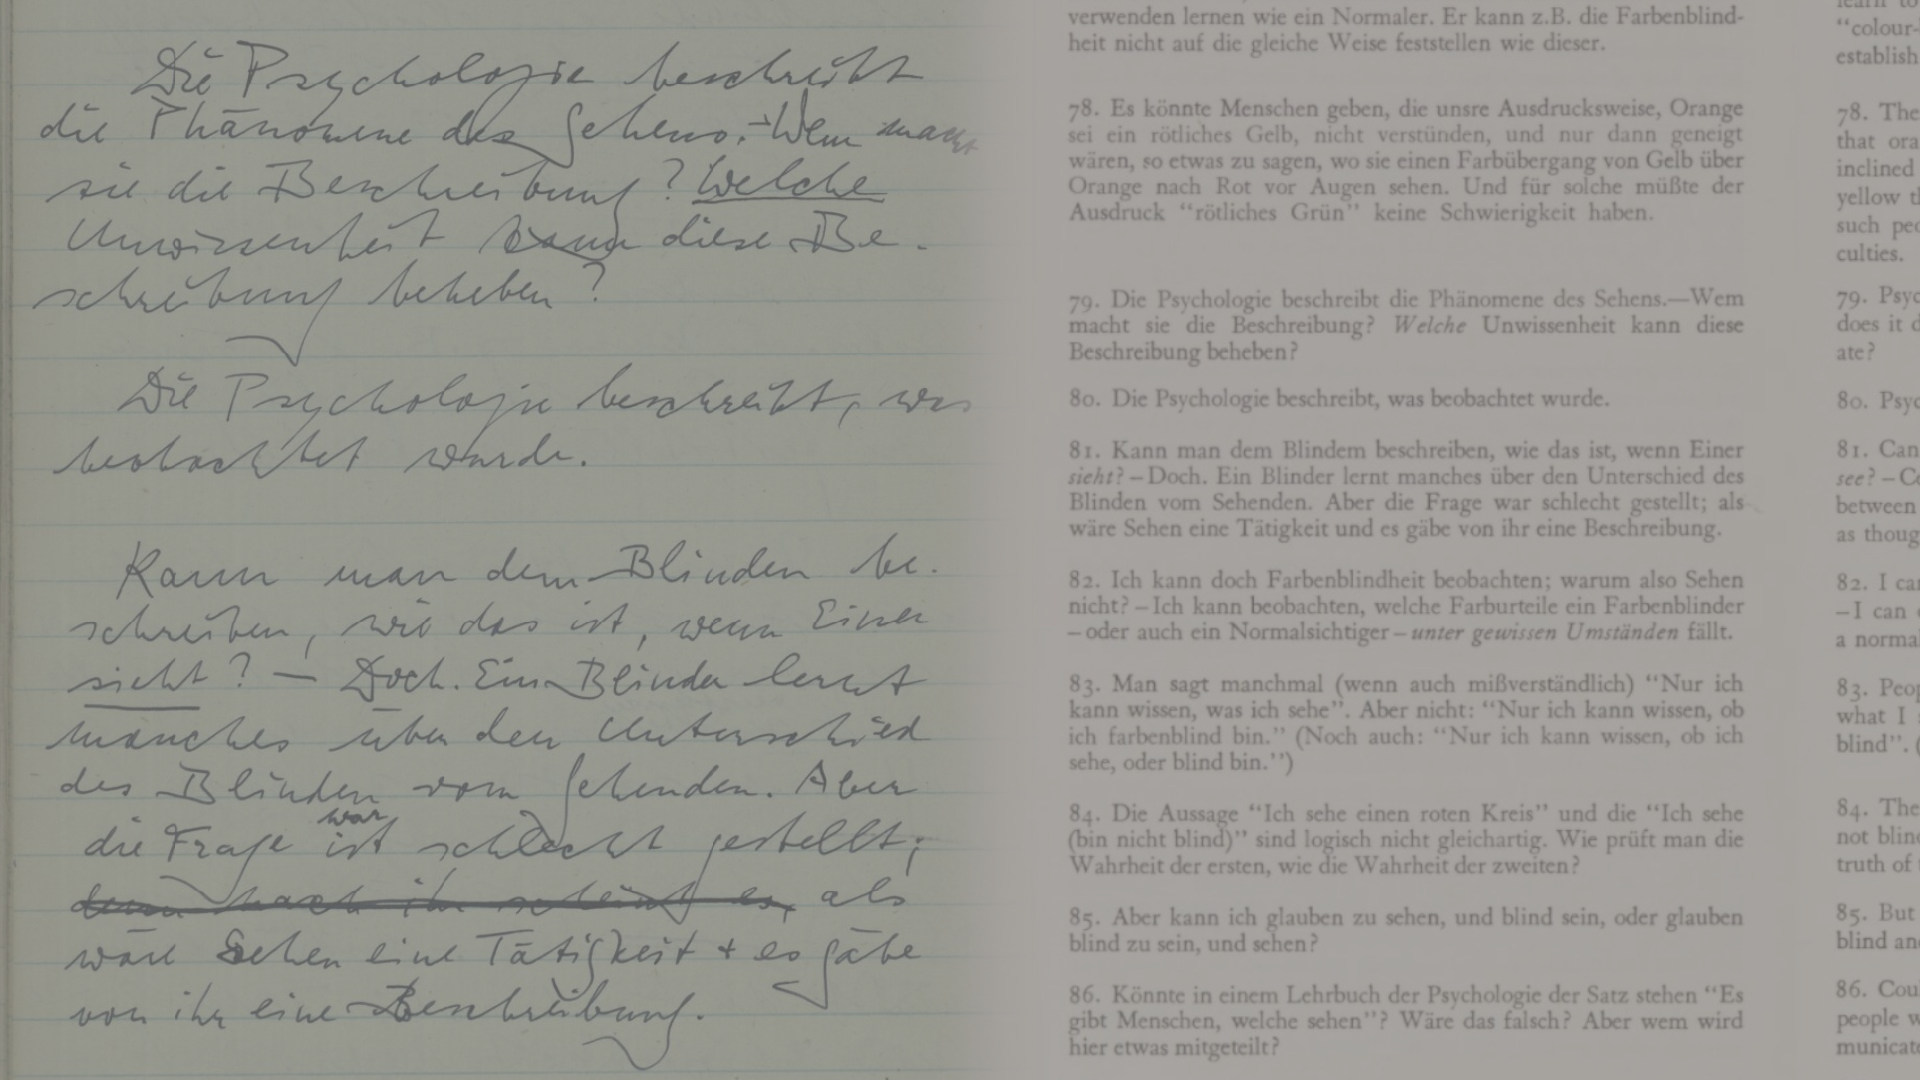 Die Psychologie beschreibt
die Phänomene des Sehens.–Wem macht
sie die Beschreibung? Welche
Unwissenheit kann diese Be-
schreibung beheben?
Die Psychologie beschreibt, was
beobachtet wurde.
Kann man dem Blinden be-
schreiben, wie das ist, wenn Einer
sieht? – Doch. Ein Blinder lernt
manches über den Unterschied
des Blinden vom Sehenden. Aber
war
die Frage ist schlecht gestellt;
denn nach ihr scheint es, als
wäre Sehen eine Tätigkeit + es gäbe
von ihr eine Beschreibung.
verwenden lernen wie ein Normaler. Er kann z.B. die Farbenblind-
heit nicht auf die gleiche Weise feststellen wie dieser.
78. Es könnte Menschen geben, die unsre Ausdrucksweise, Orange
sei ein rötliches Gelb, nicht verstünden, und nur dann geneigt
wären, so etwas zu sagen, wo sie einen Farbübergang von Gelb über
Orange nach Rot vor Augen sehen. Und für solche müßte der
Ausdruck “rötliches Grün” keine Schwierigkeit haben.
79. Die Psychologie beschreibt die Phänomene des Sehens.—Wem
macht sie die Beschreibung? Welche Unwissenheit kann diese
Beschreibung beheben?
80. Die Psychologie beschreibt, was beobachtet wurde.
81. Kann man dem Blindem beschreiben, wie das ist, wenn Einer
sieht? – Doch. Ein Blinder lernt manches über den Unterschied des
Blinden vom Sehenden. Aber die Frage war schlecht gestellt; als
wäre Sehen eine Tätigkeit und es gäbe von ihr eine Beschreibung.
82. Ich kann doch Farbenblindheit beobachten; warum also Sehen
nicht? – Ich kann beobachten, welche Farburteile ein Farbenblinder
– oder auch ein Normalsichtiger – unter gewissen Umständen fällt.
83. Man sagt manchmal (wenn auch mißverständlich) “Nur ich
kann wissen, was ich sehe”. Aber nicht: “Nur ich kann wissen, ob
ich farbenblind bin.” (Noch auch: “Nur ich kann wissen, ob ich
sehe, oder blind bin.”)
84. Die Aussage “Ich sehe einen roten Kreis” und die “Ich sehe
(bin nicht blind)” sind logisch nicht gleichartig. Wie prüft man die
Wahrheit der ersten, wie die Wahrheit der zweiten?
85. Aber kann ich glauben zu sehen, und blind sein, oder glauben
blind zu sein, und sehen?
86. Könnte in einem Lehrbuch der Psychologie der Satz stehen “Es
gibt Menschen, welche sehen”? Wäre das falsch? Aber wem wird
hier etwas mitgeteilt?
learn to
“colour-
establish
78. The
that ora
inclined
yellow th
such peo
culties.
79. Psyc
does it d
ate?
80. Psyc
81. Can
see? – Co
between
as thoug
82. I can
– I can
a norma
83. Peop
what I
blind”. (
84. The
not blind
truth of
85. But
blind and
86. Cou
people w
municate